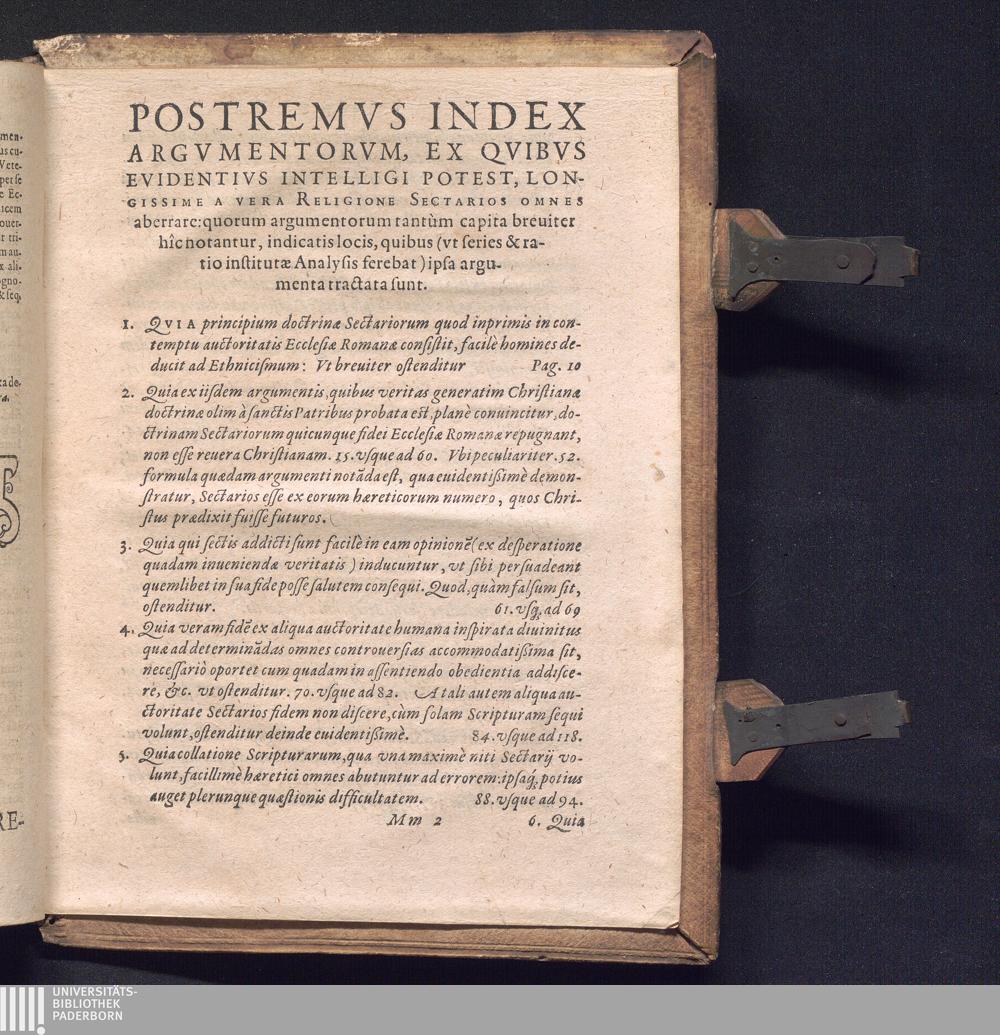 men-
us cu-
Vete-
per se
e Ec-
icem
ouer-
it tri-
m au-
x ali-
ogno-
& seq.
RE-
POSTREMVS INDEX
ARGVMENTORVM, EX QVIBVS
EVIDENTIVS INTELLIGI POTEST, LON-
GISSIME A VERA RELIGIONE SECTARIOS OMNES
aberrare: quorum argumentorum tantùm capita breuiter
hîc notantur, indicatis locis, quibus (vt ſeries & ra-
tio inſtitutæ Analyſis ferebat) ipſa argu-
menta tractata ſunt.
1. QVIA principium doctrinæ Sectariorum quod inprimis in con-
temptu auctoritatis Eccleſiæ Romanæ conſiſtit, facilè homines de-
ducit ad Ethniciſmum: Vt breuiter oſtenditur Pag. 10
2. Quia ex iiſdem argumentis, quibus veritas generatim Chriſtianæ
doctrinæ olim à ſanctis Patribus probata eſt, planè conuincitur, do-
ctrinam Sectariorum quicunque fidei Eccleſiæ Romanæ repugnant,
non eſſe reuera Chriſtianam. 15. vſque ad 60. Vbi peculiariter. 52.
formula quædam argumenti notāda eſt, qua euidentißimè demon-
ſtratur, Sectarios eſſe ex eorum hæreticorum numero, quos Chri-
ſtus prædixit fuiſſe futuros.
3. Quia qui ſectis addicti ſunt facilè in eam opinionē (ex deſperatione
quadam inueniendæ veritatis) inducuntur, vt ſibi perſuadeant
quemlibet in ſua fide poſſe ſalutem conſequi. Quod, quàm falſum ſit,
oſtenditur. 61. vſq; ad 69
4. Quia veram fidē ex aliqua auctoritate humana inſpirata diuinitus
quæ ad determinādas omnes controuerſias accommodatißima ſit,
neceſſariò oportet cum quadam in aſſentiendo obedientia addiſce-
re, &c. vt oſtenditur. 70. vſque ad 82. A tali autem aliqua au-
ctoritate Sectarios fidem non diſcere, cùm ſolam Scripturam ſequi
volunt, oſtenditur deinde euidentißimè. 84. vſque ad 118.
5. Quia collatione Scripturarum, qua vna maximè niti Sectarij vo-
lunt, facillimè hæretici omnes abutuntur ad errorem: ipſaq́; potius
auget plerunque quæſtionis difficultatem. 88. vſque ad 94.
Mm 2 6. Quia
UNIVERSITÄTS-
BIBLIOTHEK
PADERBORN